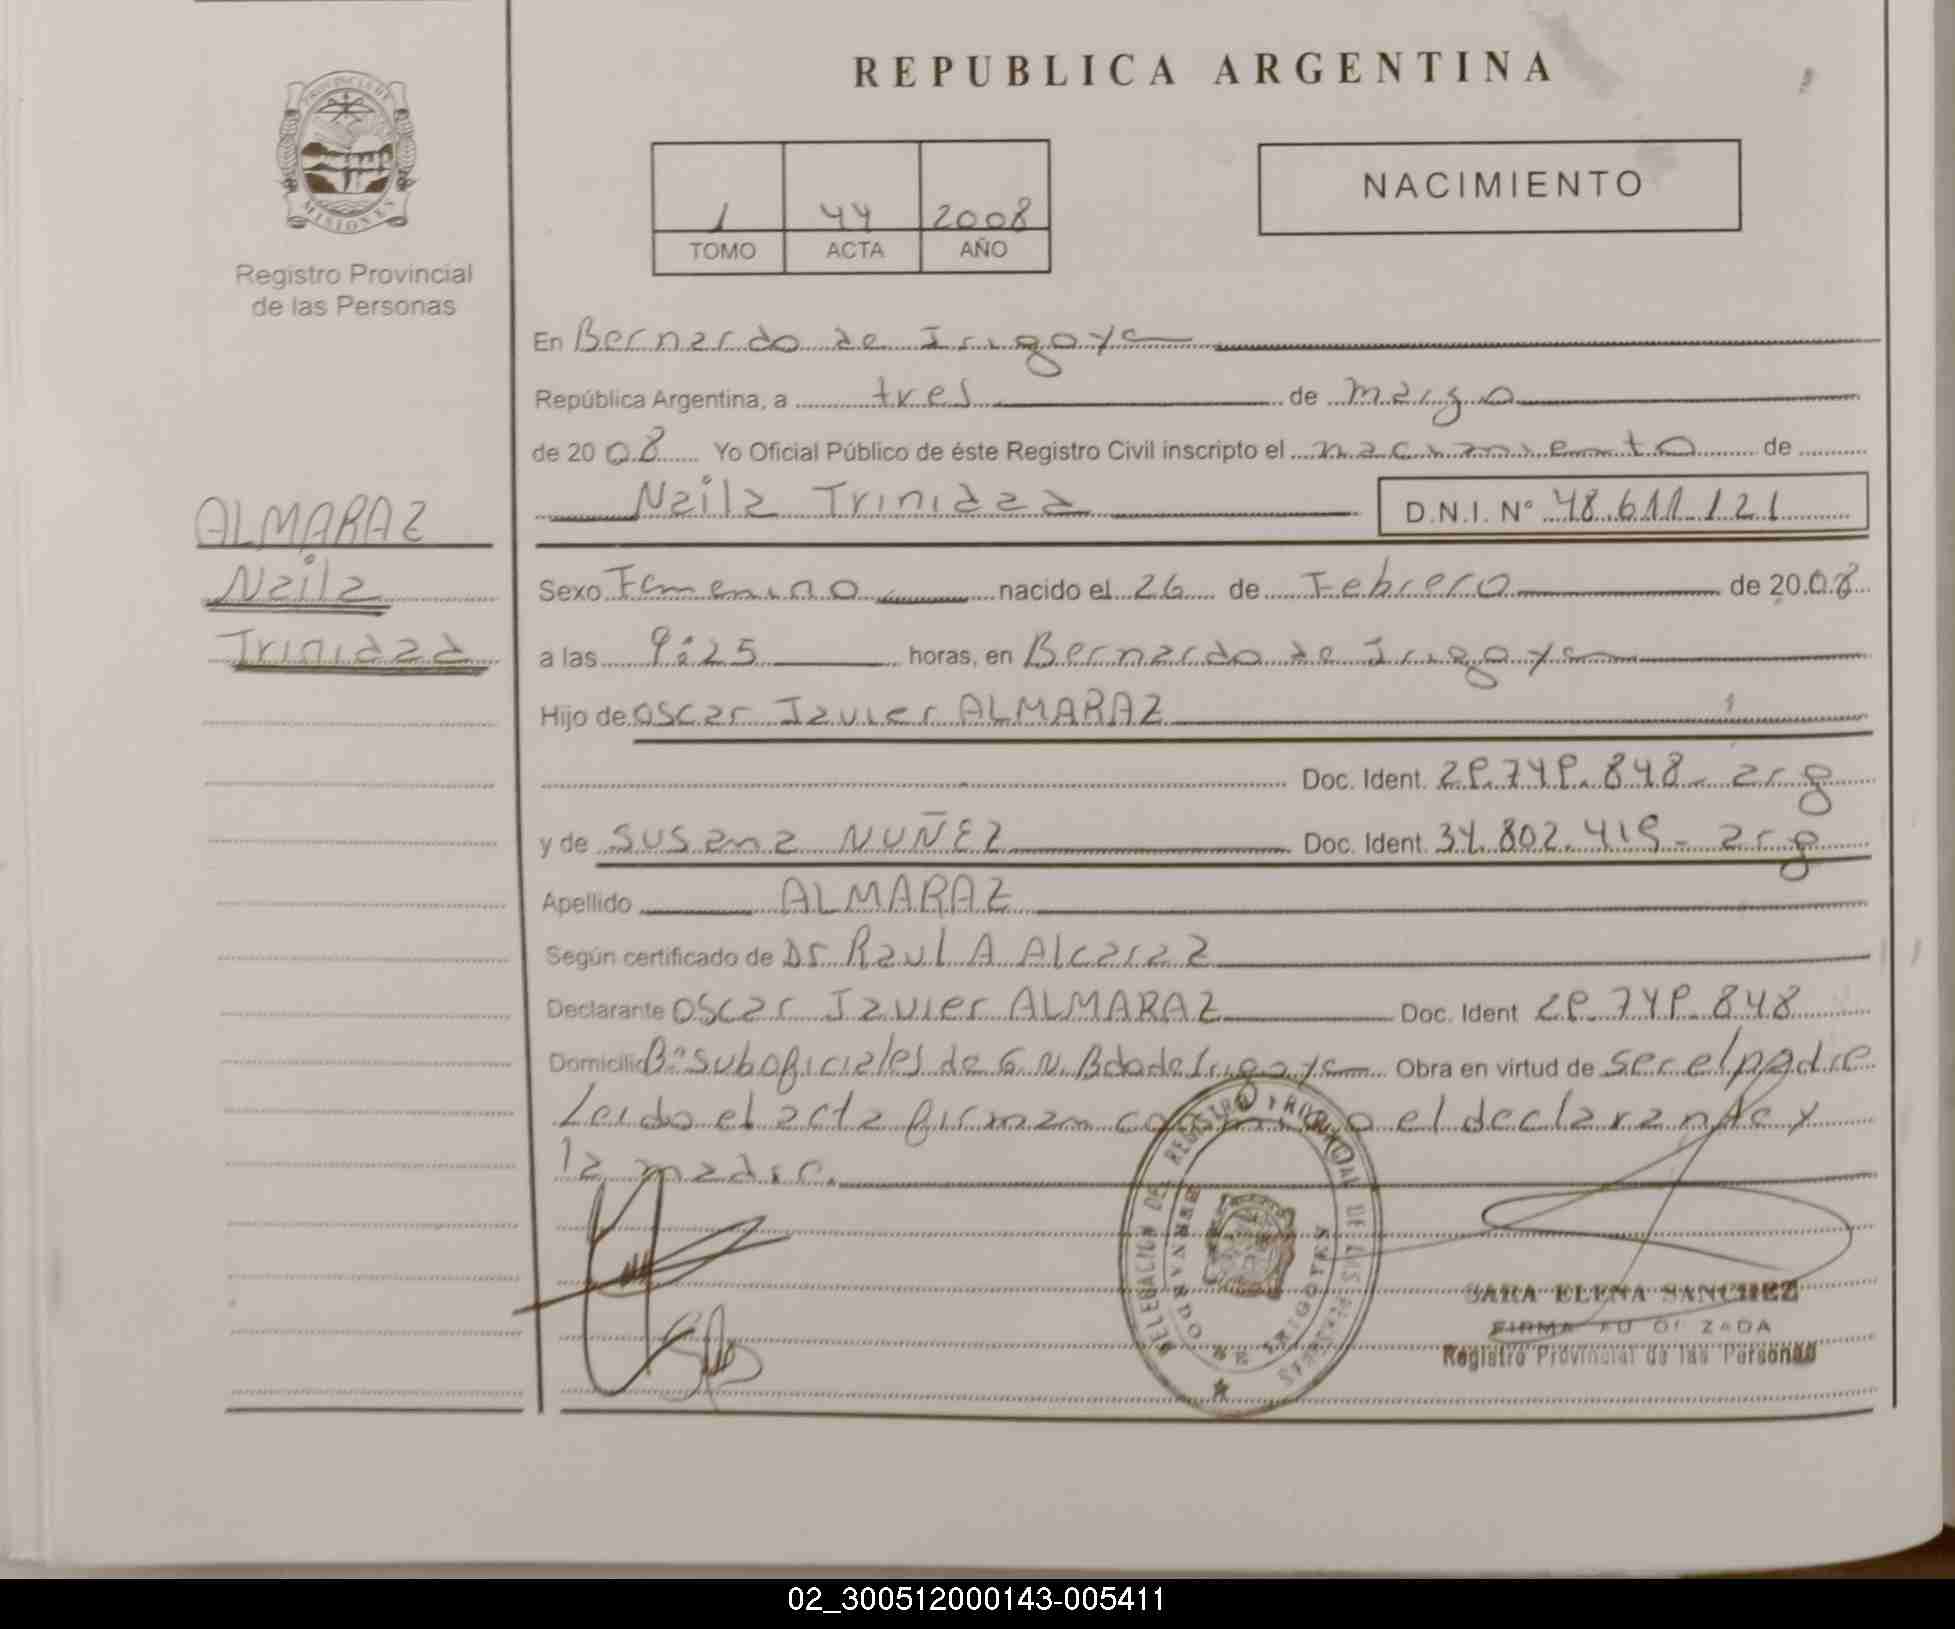 REPUBLICA ARGENTINA
PROVINCIA DE
MISIONES
Registro Provincial
de las Personas
1 44 2008
TOMO ACTA AÑO
NACIMIENTO
En Bernardo de Irigoyen
República Argentina, a tres de marzo
de 2008 Yo Oficial Público de éste Registro Civil inscripto el nacimiento de
Naila Trinidad D.N.I. Nº 48.611.121
ALMARAZ
Naila
Trinidad
Sexo Femenino nacido el 26 de Febrero de 2008
a las 9:25 horas, en Bernardo de Irigoyen
Hijo de Oscar Javier ALMARAZ
Doc. Ident. 29.749.848- arg
y de Susana NUÑEZ Doc. Ident. 34.802.419- arg
Apellido ALMARAZ
Según certificado de Dr Raul A Alcaraz
Declarante Oscar Javier ALMARAZ Doc. Ident 29.749.848
Domicilio Bº Suboficiales de G.N. Bdo de Irigoyen Obra en virtud de ser el padre
Leido el acta firman conmigo el declarante y
la madre.
DELEGACION DEL REGISTRO PROVINCIAL DE LAS PERSONAS
BERNARDO DE IRIGOYEN
SARA ELENA SANCHEZ
FIRMA
Registro Provincial de las Personas
02_300512000143-005411